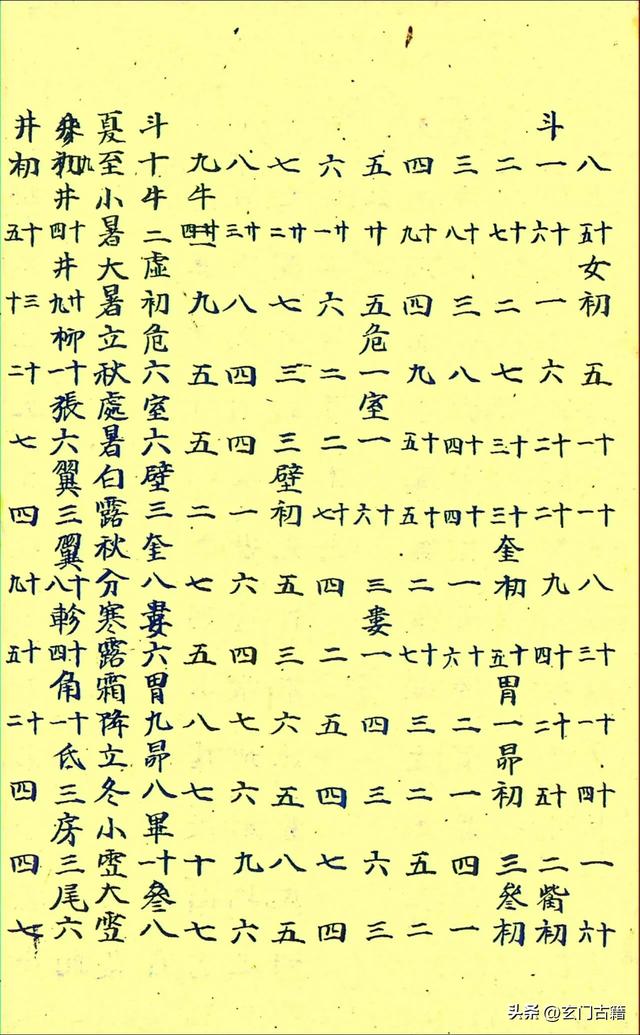 八十五女初五十一十一八十三十一十四一十六
斗一十六一六十二十二九十四十二十五二觜初
二十七二七十三十三奎初十五胃一昴初三參初
三十八三八十四十四一十六二一四一
四十九四九十五十五二十七三二五二
五廿五危一室一十六三婁一四三六三
六廿一六二二十七四二五四七四
七廿二七三三壁初五三六五八五
八廿三八四四一六四七六九六
九牛九五五二七五八七十七
斗十牛二虛初危六室六壁三奎八婁六胃九昴八畢十一參八
夏至小暑大暑立秋處暑白露秋分寒露霜降立冬小雪大雪
參初九井十四井廿九柳十一張六翼三翼十八軫十四角十一氐三房三尾六
井初十五十三十二七四十九十五十二四四七
头条 @玄门古籍